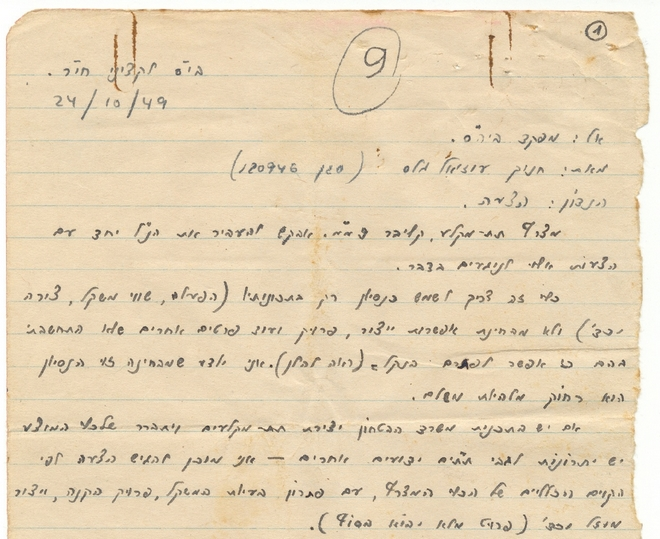 1
9
בי"ס לקציני חי"ר.
24/10/49
אל: מפקד ביה"ס.
מאת: חניך עוזיאל גלס (סגן 120946)
הנדון: הצעה.
מצו"ף תת-מקלע, קליבר 9 מ"מ. אבקש להעביר את הנ"ל יחד עם
הצעות אשר לנוגעים בדבר.
כלי זה צריך לשמש כנסיון רק בתכונותיו (הפעולה, שווי משקל, צורה
וכד') ולא מבחינת אפשרות ייצור, פרוק ועוד פרטים אחרים שלא התחשבתי
בהם כי אפשר לפתרם בנקל (ראה להלן). אני יודע שמבחינה זו הנסיון
הוא רחוק מלהיות משלם.
אם יש בתכנית משרד הבטחון יצירת תתי-מקלעים ויתברר שלכלי המוצע
יש יתרונות לגבי תת"ים ידועים אחרים — אני מוכן להגיש הצעה לפי
הקוים הכלליים של הכלי המצו"ף, עם פתרון בעיות המשקל, פרוק הקנה, ייצור
מוזל וכד' (פרוט מלא יבוא בסוף).